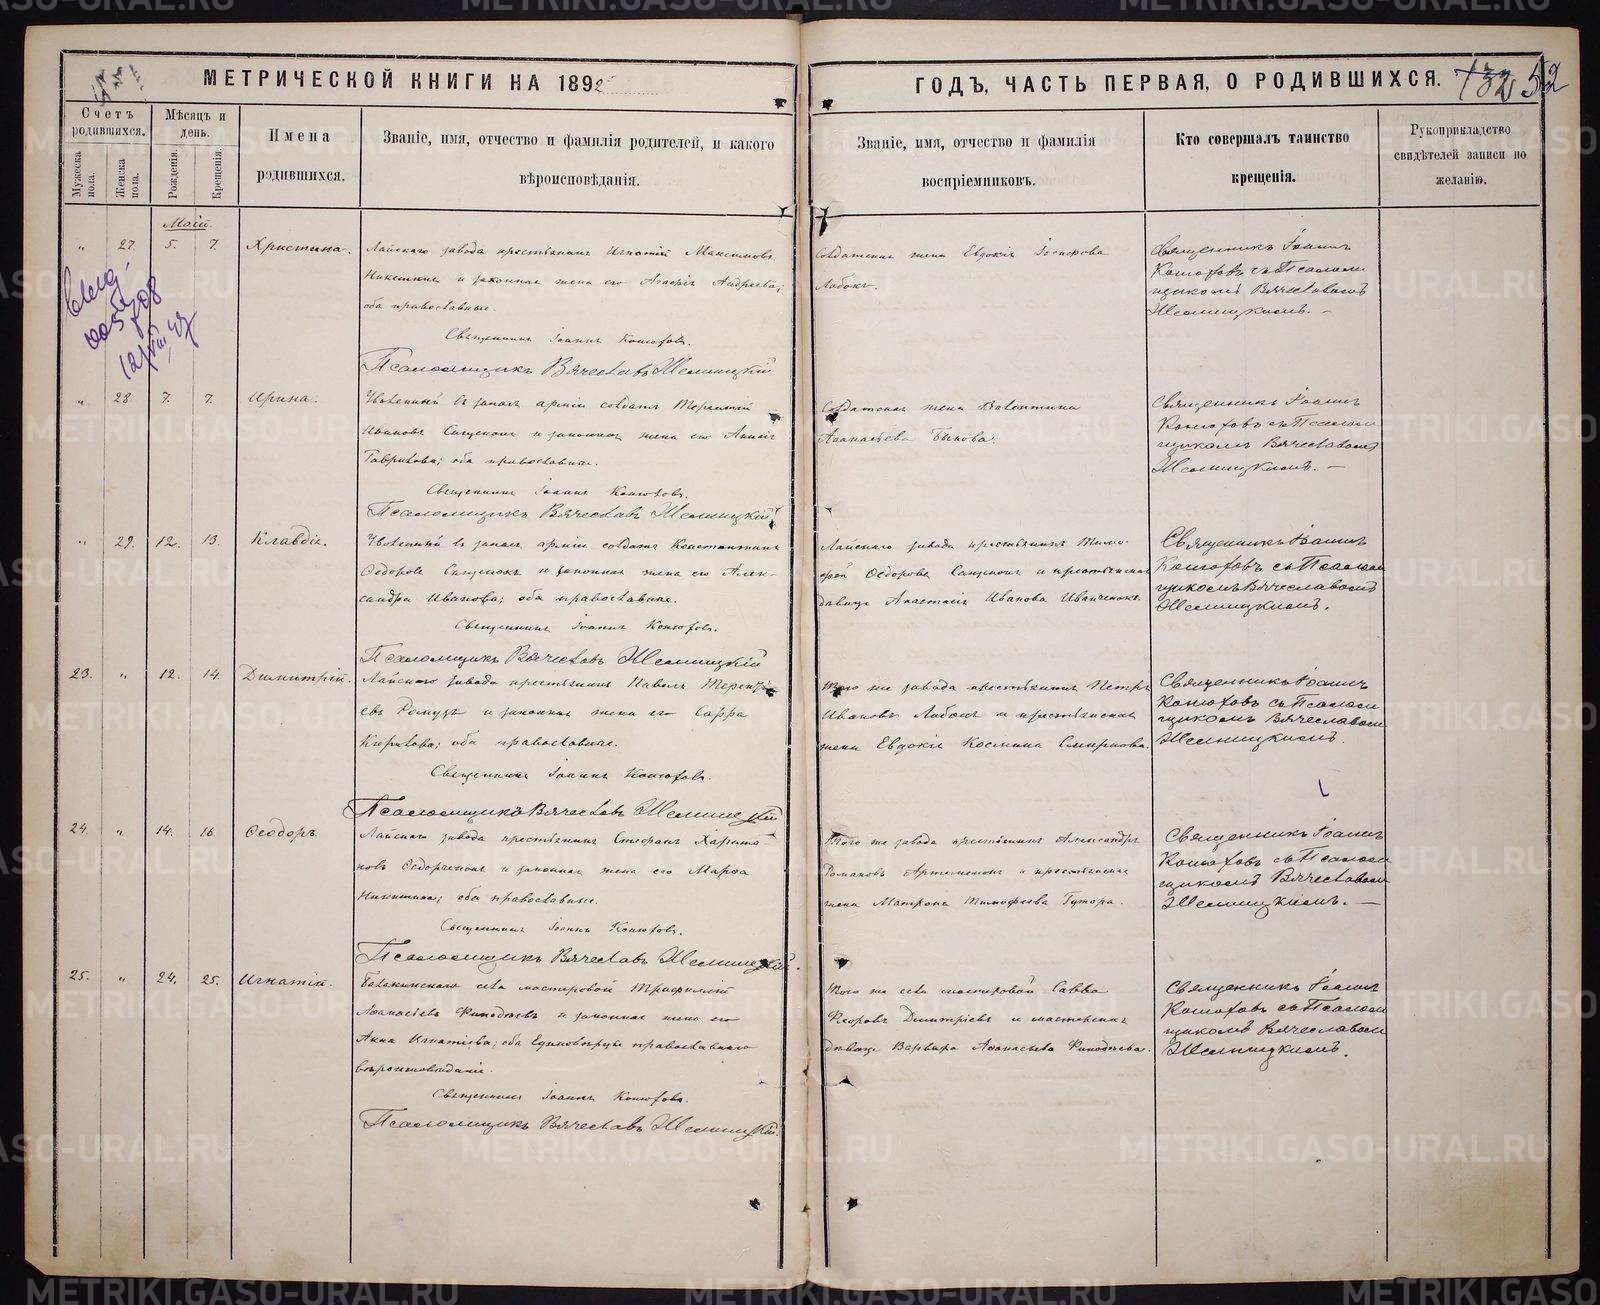 МЕТРИЧЕСКОЙ КНИГИ НА 1892
ГОДЪ, ЧАСТЬ ПЕРВАЯ, О РОДИВШИХСЯ.
132 52
Счетъ родившихся.
Мужеска пола.
Женска пола.
Мѣсяцъ и день.
Рожденія.
Крещенія.
Имена родившихся.
Званіе, имя, отчество и фамилія родителей, и какого
вѣроисповѣданія.
Званіе, имя, отчество и фамилія
воспріемниковъ.
Кто совершалъ таинство
крещенія.
Рукоприкладство
свидѣтелей записи по
желанію.
Маій.
" 27. 5. 7. Христина.
Лайскаго завода крестьянинъ Игнатій Максимовъ
Никитинъ и законная жена его Агафія Андреева;
оба православные.
Священникъ Іоаннъ Конюховъ.
Псаломщикъ Вячеславъ Желницкій
Солдатская жена Евдокія Іосифова
Лобокъ.
Священникъ Іоаннъ
Конюховъ съ Псалом
щикомъ Вячеславомъ
Желницкимъ. –
" 28 7. 7. Ирина.
Уволенный въ запасъ арміи солдатъ Терентій
Ивановъ и законная жена его
Гаврилова; оба православные.
Священникъ Іоаннъ Конюховъ.
Псаломщикъ Вячеславъ Желницкій
Солдатская жена Валентина
Аѳанасьева Быкова.
Священникъ Іоаннъ
Конюховъ съ Псалом
щикомъ Вячеславомъ
Желницкимъ. –
" 29. 12. 13. Клавдія.
Уволенный въ запасъ арміи солдатъ Константинъ
Ѳедоровъ и законная жена его Алек-
сандра Иванова; оба православные.
Священникъ Іоаннъ Конюховъ.
Псаломщикъ Вячеславъ Желницкій
Лайскаго завода крестьянинъ Тимо-
фей Ѳедоровъ и крестьянская
дѣвица Анастасія Иванова Иванченокъ.
Священникъ Іоаннъ
Конюховъ съ Псалом
щикомъ Вячеславомъ
Желницкимъ.
23. " 12. 14. Димитрій.
Лайскаго завода крестьянинъ Павелъ Терентi-
евъ и законная жена его Сарра
Кирилова; оба православные.
Священникъ Іоаннъ Конюховъ.
Псаломщикъ Вячеславъ Желницкій
Того же завода крестьянинъ Петръ
Ивановъ Лобокъ и крестьянская
жена Евдокія Космина Смирнова.
Священникъ Іоаннъ
Конюховъ съ Псалом
щикомъ Вячеславом
Желницкимъ.
24. " 14. 16. Ѳеодоръ.
Лайскаго завода крестьянинъ Стефанъ Харито-
новъ и законная жена его Марѳа
Никитина; оба православные.
Священникъ Іоаннъ Конюховъ.
Псаломщикъ Вячеславъ Желницкій.
Того же завода крестьянинъ Александръ
Романовъ Артеменокъ и крестьянская
жена Матрона Тимофеева Гутора.
Священникъ Іоаннъ
Конюховъ съ Псалом
щикомъ Вячеславом
Желницкимъ. –
25. " 24. 25. Игнатій.
Балакинскаго села мастеровой Трифиллій
Аѳанасіевъ Финодѣевъ и законная жена его
Анна Игнатіева; оба Единовѣрцы православнаго
вѣроисповѣданія.
Священникъ Іоаннъ Конюховъ.
Псаломщикъ Вячеславъ Желницкій.
Того же села мастеровой Савва
Димитріевъ и мастерская
дѣвица Варвара Аѳанасьева Финодѣева.
Священникъ Іоаннъ
Конюховъ съ Псалом
щикомъ Вячеславом
Желницкимъ.
METRIKI.GASO-URAL.RU